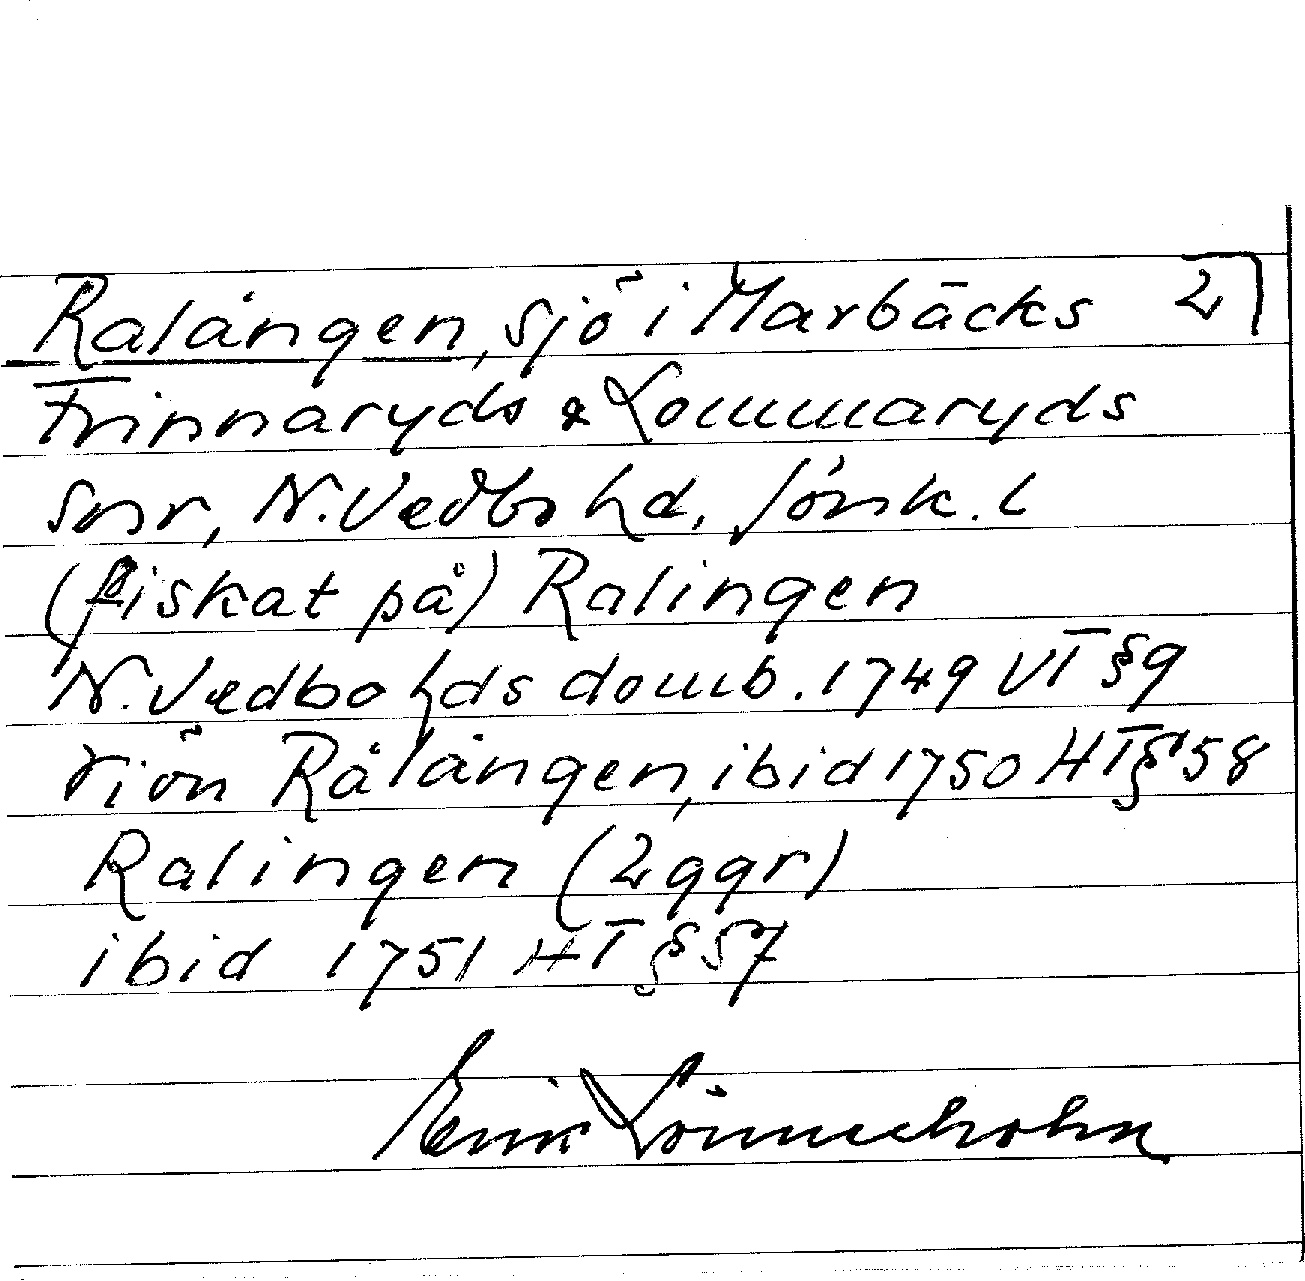 Ralången, sjö i Marbäcks 2
Frinnaryds & Lommaryds
snr, N. Vedbo hd, Jönk. l
(fiskat på) Ralingen
N. Vedbo hds domb. 1749 VT § 9
siön Rålången, ibid 1750 HT § 58
Ralingen (2 ggr)
ibid 1751 HT § 57
Erik Lönneholm